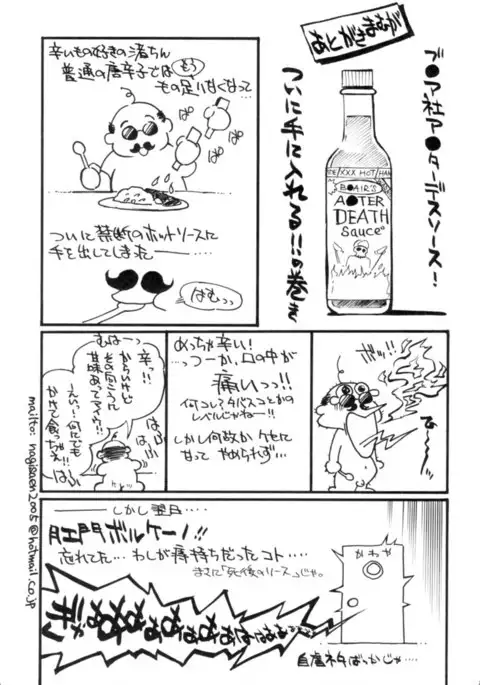 まんが
あとがき
ブ●ア社ア●ターデスソース!
ついに手に入れる!!の巻き
XXX HOT
B●AIR'S
A●TER
DEATH
Sauce
辛いもの好きの渚ちん
普通の唐辛子では もう
もの足りなくなって…
ぱ
ぱ
ぱ
ついに禁断のホットソースに
手を出してしまった――……
はむっっ
ガッ!!
めっちゃ辛い!
…つーか、口の中が
痛いっっ!!
何コレ?タバスコとかの
レベルじゃねー!!
しかし何故かクセに
なって やめられず…
辛っ!!
むは～っ
からいけど
その向こうに
甘味あってマイウー!!
え～い!何にでも
かけて食っちゃえ!!
はふ
はふ
はふ
――しかし翌日……
肛門ボルケーノ!!
忘れてた…わしが痔持ちだったコト……
まさに「死後のソース」じゃ。
かわや
自虐ネタばっかじゃ……
mailto: nagisaen2005@hotmail.co.jp